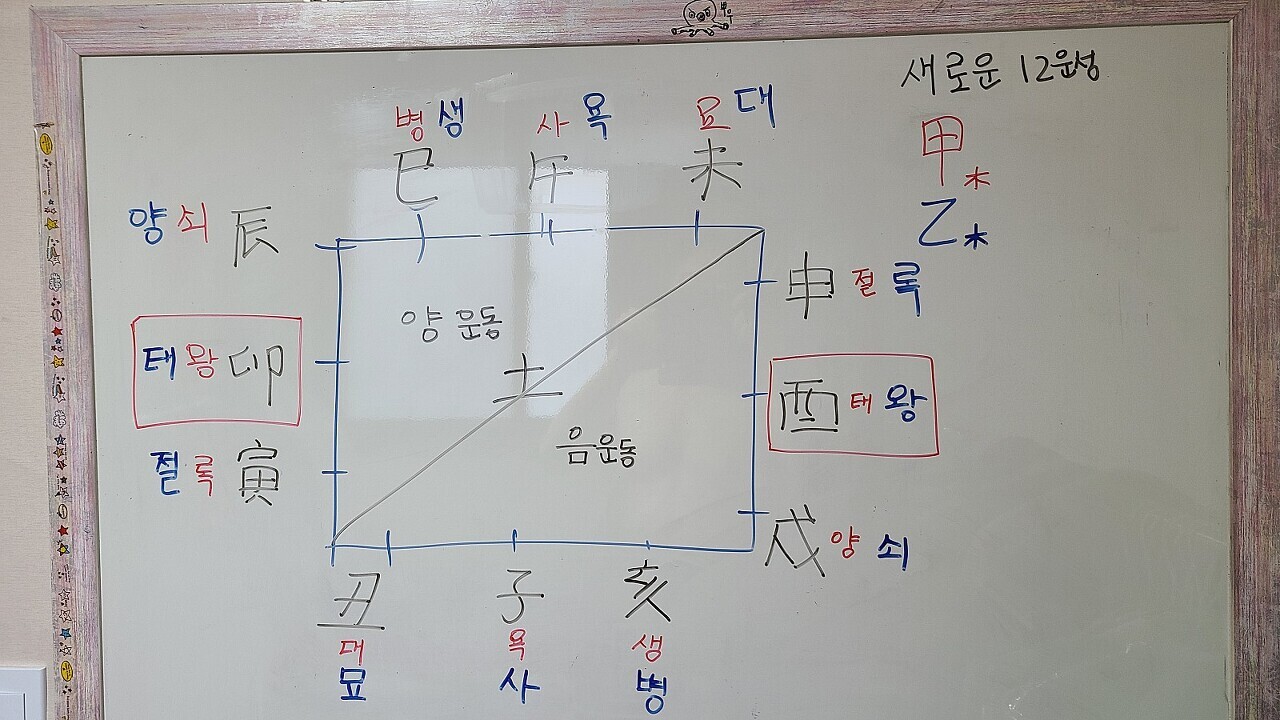 새로운 12운성
甲木
乙木
병 생
사 욕
묘 대
巳 午 未
양 쇠 辰
태 왕 卯
절 록 寅
양 운동
土
음운동
申 절 록
酉 태 왕
戌 양 쇠
丑 子 亥
대 욕 생
묘 사 병